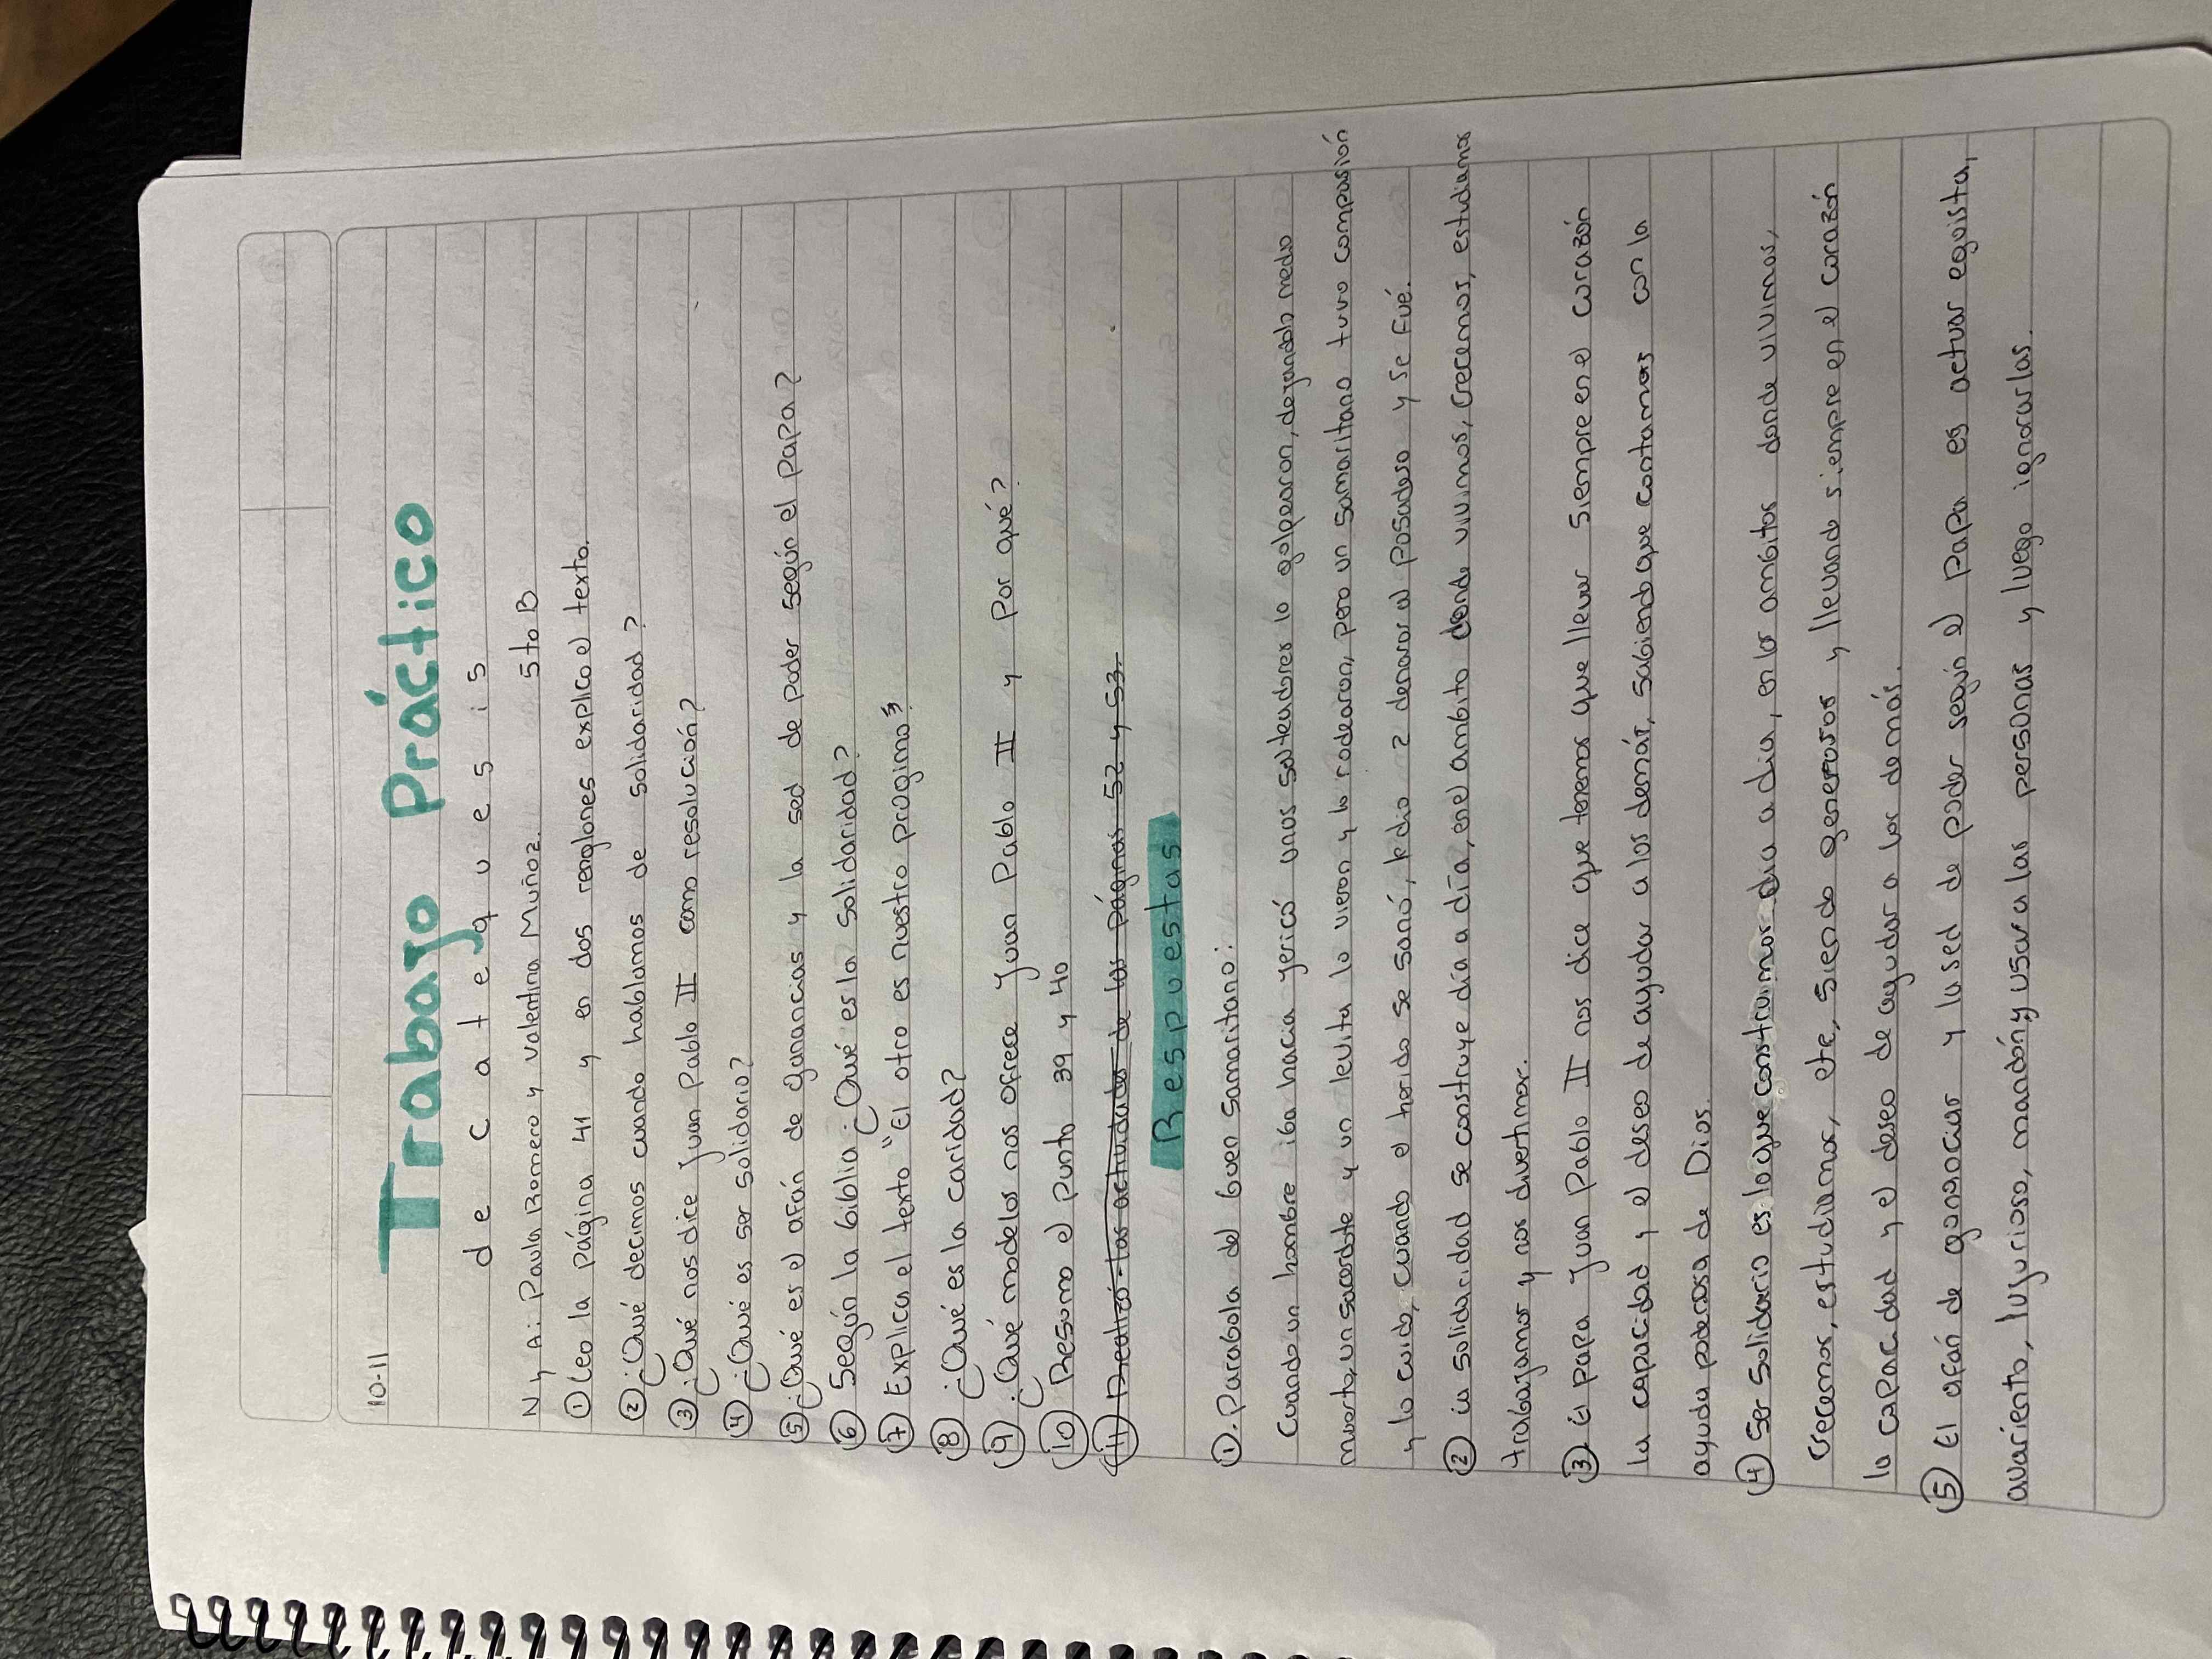 10-11
Trabajo Práctico
de catequesis
N y A: Paula Romero y Valentina Muñoz. 5to B
① Leo la página 41 y en dos renglones explico el texto.
② ¿Qué decimos cuando hablamos de solidaridad?
③ ¿Qué nos dice Juan Pablo II como resolución?
④ ¿Qué es ser solidario?
⑤ ¿Qué es el afán de ganancias y la sed de poder según el Papa?
⑥ Según la biblia ¿Qué es la solidaridad?
⑦ Explica el texto "El otro es nuestro progimo"
⑧ ¿Qué es la caridad?
⑨ ¿Qué modelos nos ofrece Juan Pablo II y por qué?
⑩ Resumo el punto 39 y 40
⑪ Realizó las actividades de las páginas 52 y 53.
Respuestas
①. Parabola del buen samaritano:
Cuando un hombre iba hacia yericó unos salteadores lo golpearon, dejandolo medio
muerto, un sacerdote y un levita lo vieron y lo rodearon, pero un samaritano tuvo compasión
y lo cuido, cuando el herido se sanó, le dio 2 denarios al posadero y se fué.
② La solidaridad se construye día a día, en el ambito donde vivimos, crecemos, estudiamos
trabajamos y nos divertimos.
③ El papa Juan Pablo II nos dice que tenemos que llevar siempre en el corazón
la capacidad y el deseo de ayudar a los demás, sabiendo que contamos con la
ayuda poderosa de Dios.
④ Ser solidario es lo que construimos dia a dia, en los ambitos donde vivimos,
crecemos, estudiamos, etc, siendo generosos y llevando siempre en el corazón
la capacidad y el deseo de ayudar a los demás.
⑤ El afán de ganancias y la sed de poder según el Papa es actuar egoista,
avariento, lujurioso, mandón y usar a las personas y luego ignorarlas.